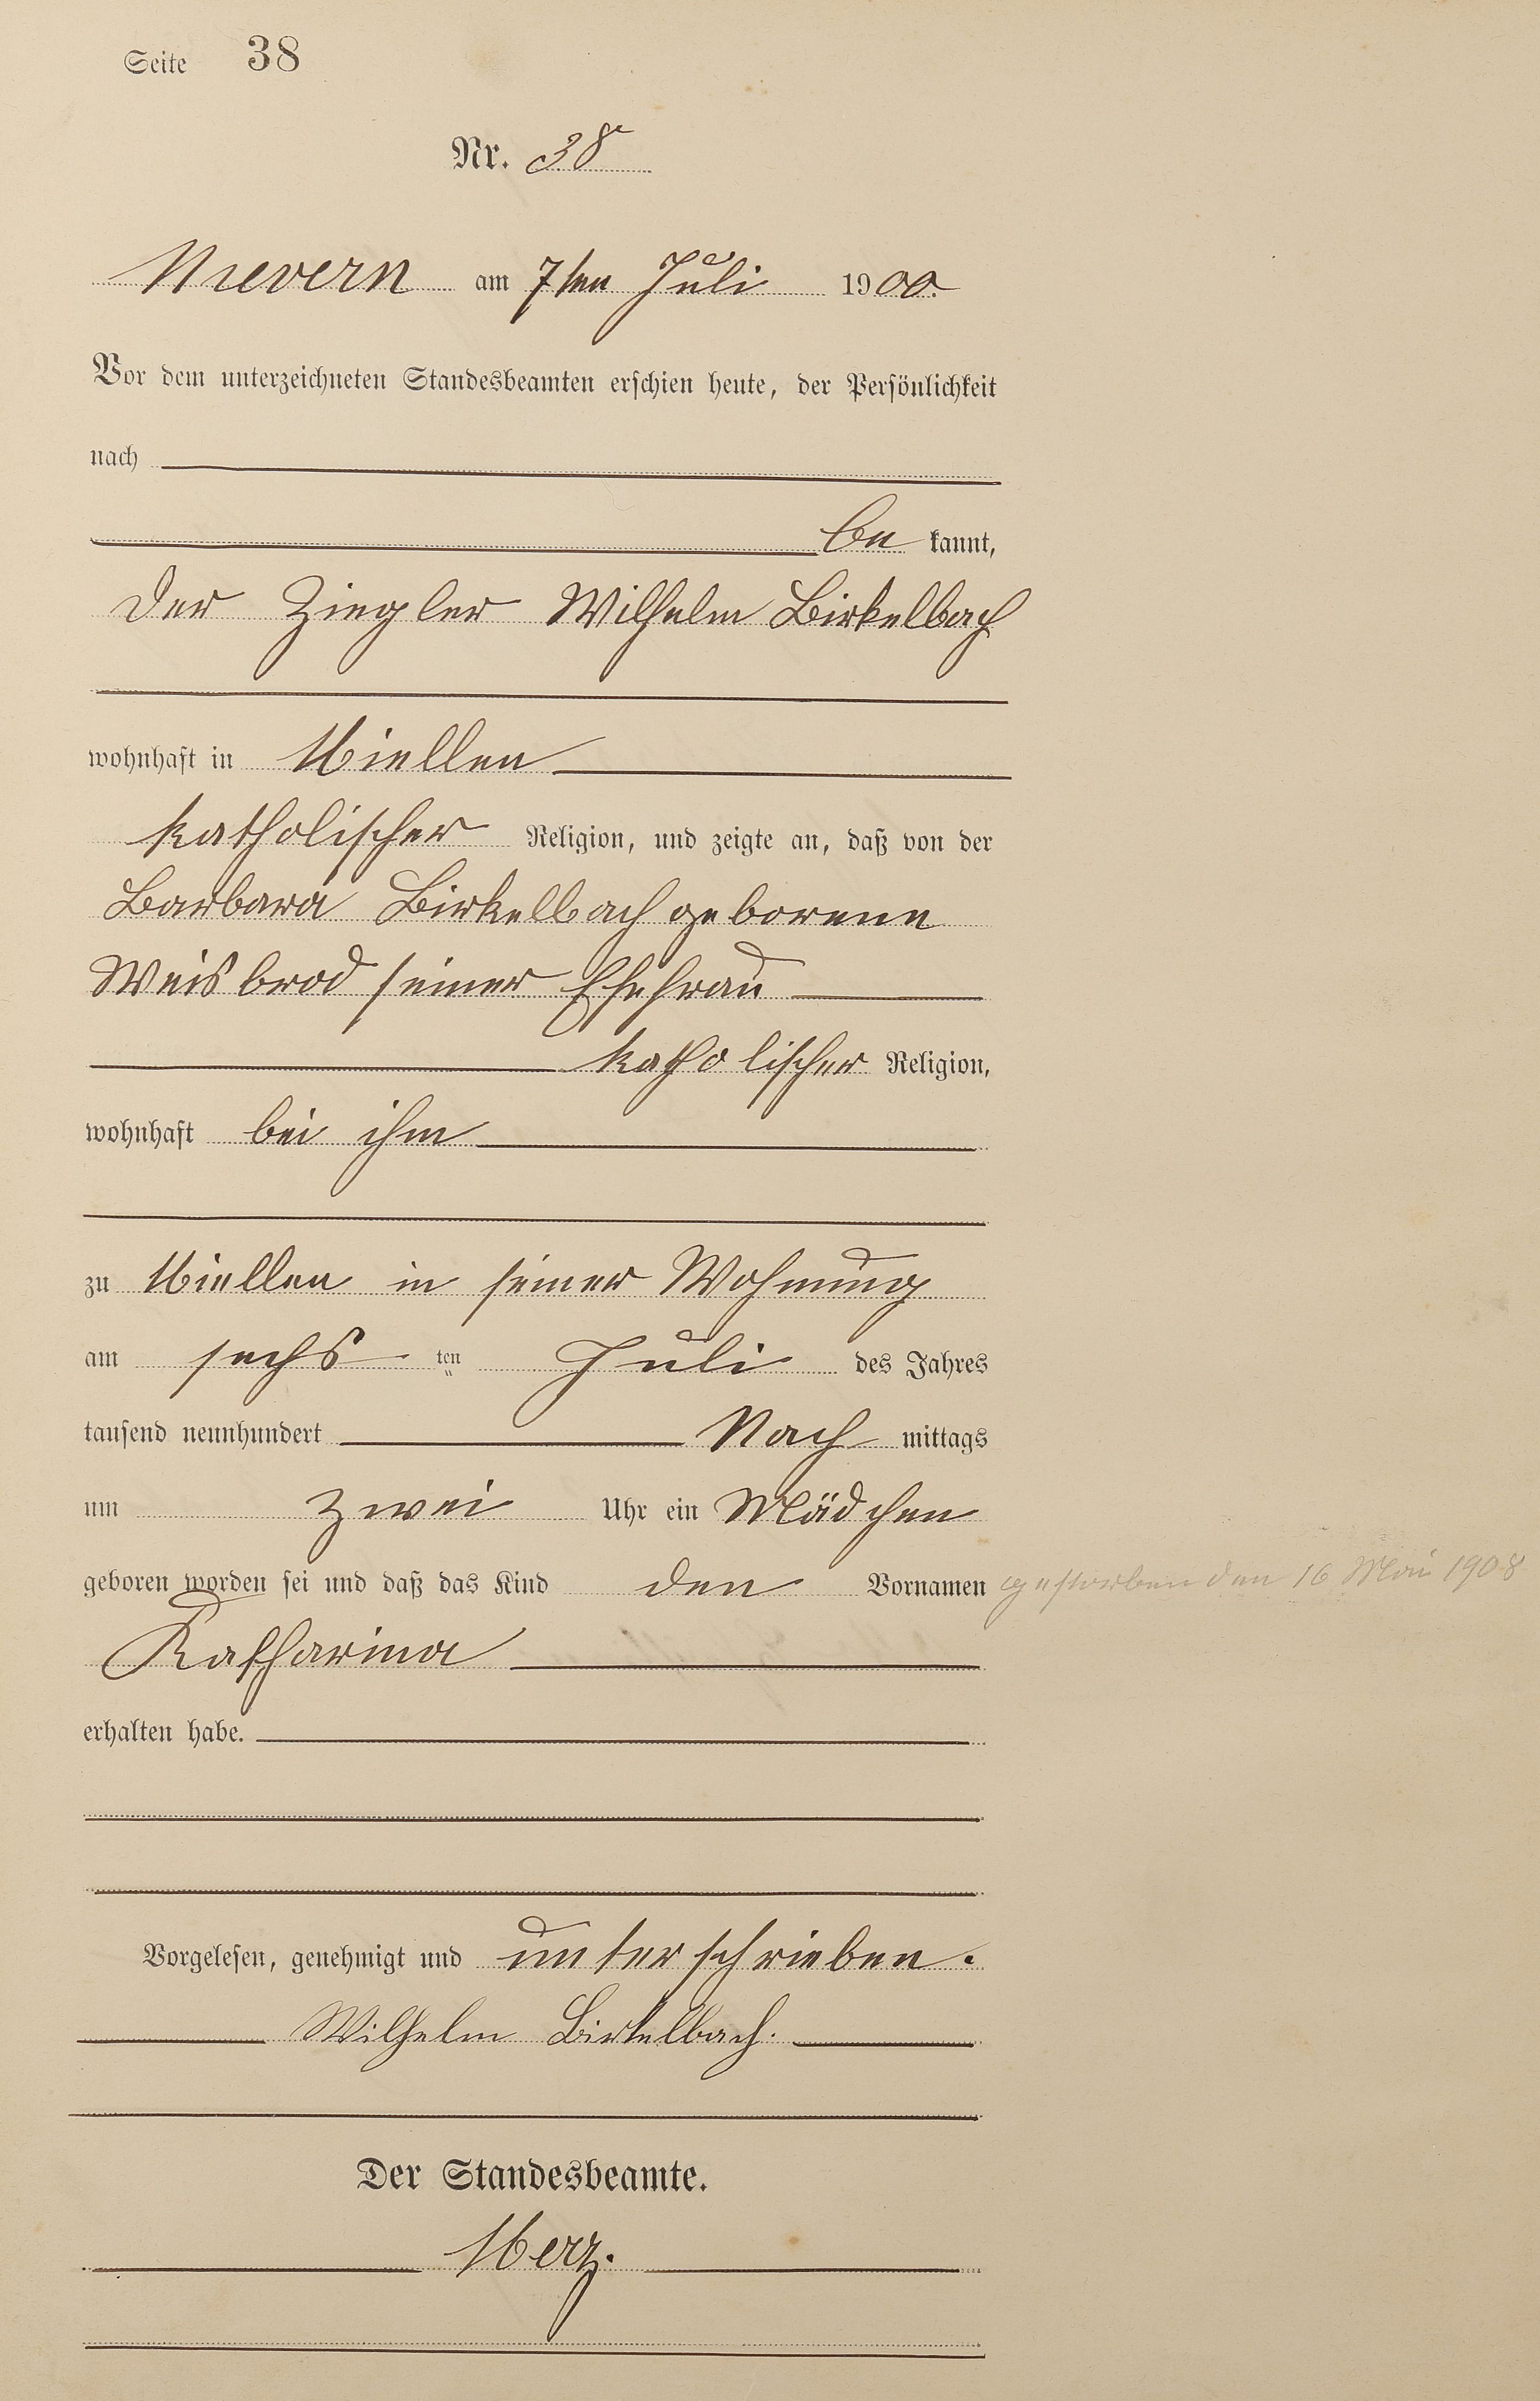 Seite 38
Nr. 38
Nievern am 7ten Juli 1900.
Vor dem unterzeichneten Standesbeamten erschien heute, der Persönlichkeit
nach
be kannt,
der Ziegler Wilhelm Birkelbach
wohnhaft in Miellen
katholischer Religion, und zeigte an, daß von der
Barbara Birkelbach geborene
Weisbrod seiner Ehefrau
katholischer Religion,
wohnhaft bei ihm
zu Miellen in seiner Wohnung
am sechs ten Juli des Jahres
tausend neunhundert Nach mittags
um zwei Uhr ein Mädchen
geboren worden sei und daß das Kind den Vornamen gestorben den 16 Mai 1908
Katharina
erhalten habe.
Vorgelesen, genehmigt und unterschrieben.
Wilhelm Birkelbach.
Der Standesbeamte.
Merz.